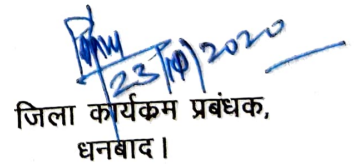 23/10/2020
जिला कार्यकम प्रबंधक,
धनबाद।